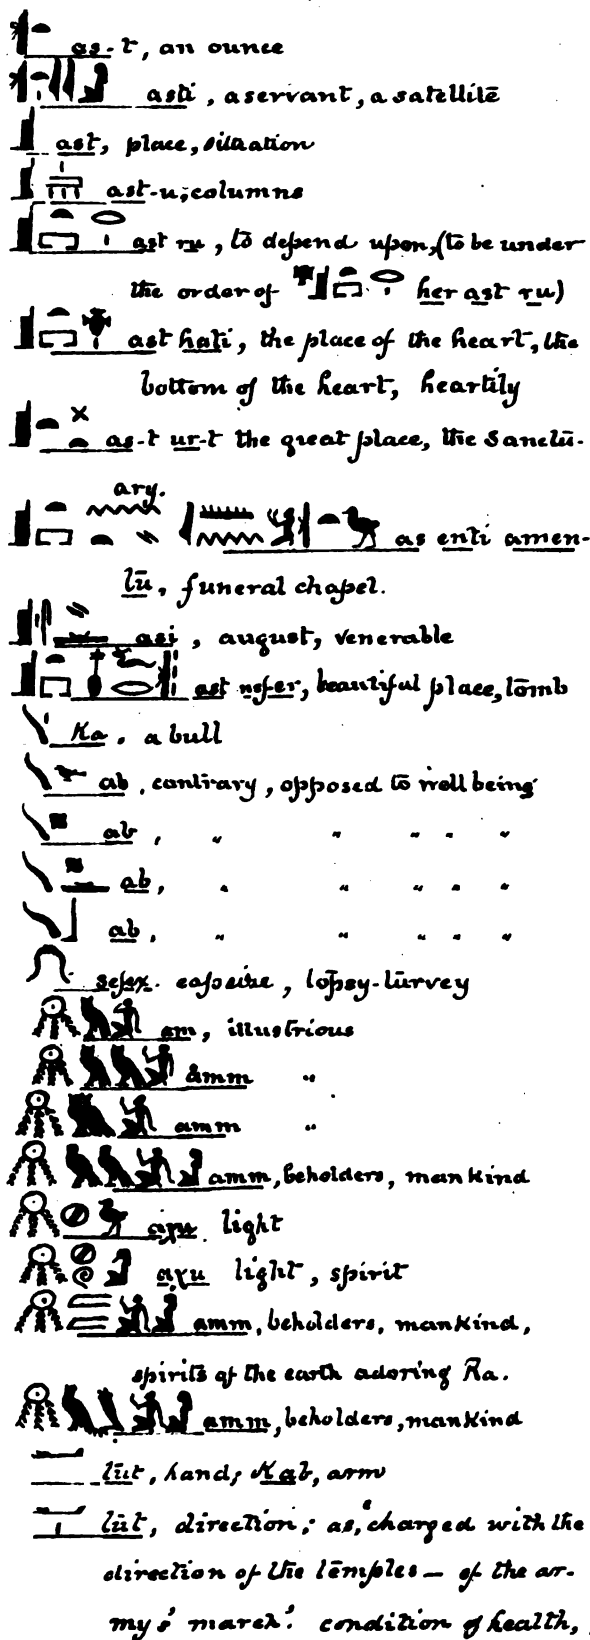 as-t, an ounce
asti, a servant, a satellite
ast, place, situation
ast-u, columns
ast ru, to depend upon, (to be under
the order of her ast ru)
ast hati, the place of the heart, the
bottom of the heart, heartily
as-t ur-t the great place, the Sanctu-
ary.
as enti amen-
tu, funeral chapel.
asi, august, venerable
ast nefer, beautiful place, tomb
Ka. a bull
ab, contrary, opposed to well being
ab, " " " " "
ab, " " " " "
ab, " " " " "
topsy-turvey
am, illustrious
åmm "
amm "
amm, beholders, mankind
aχu light
aχu light, spirit
amm, beholders, mankind,
spirits of the earth adoring Ra.
amm, beholders, mankind
tut, hand; Kab, arm
tut, direction; as, "charged with the
direction of the temples — of the ar-
my's march". condition of health,